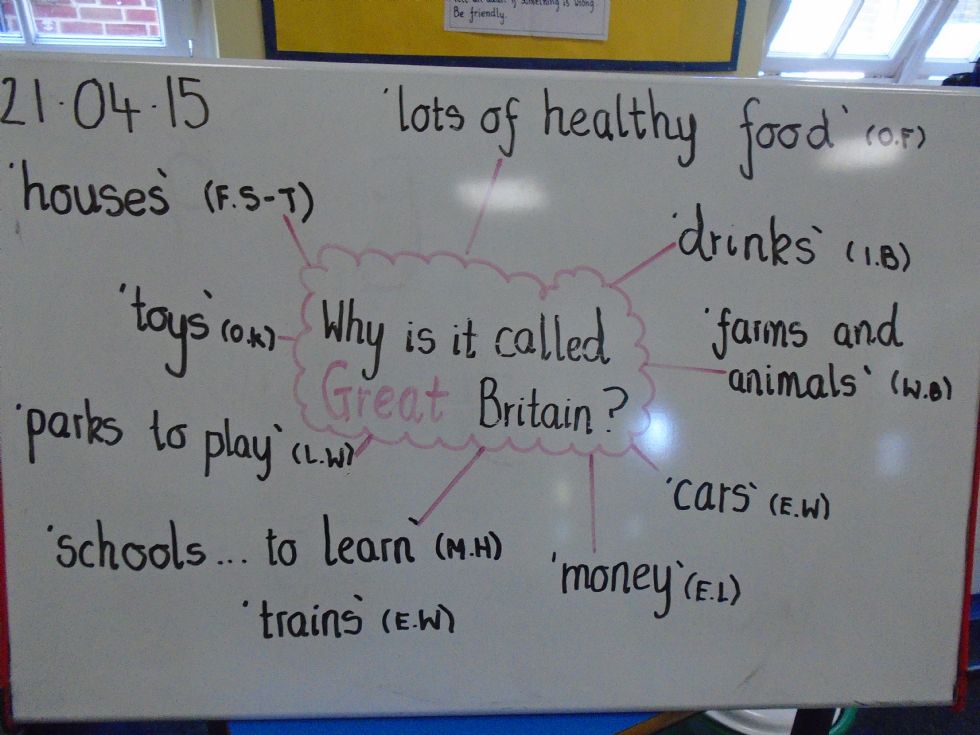 Be friendly.
21.04.15
'lots of healthy food' (O.F)
'houses' (F.S-T)
'drinks' (I.B)
'toys' (O.K)
Why is it called
Great Britain?
'farms and
animals' (W.B)
'parks to play' (L.W)
'cars' (E.W)
'schools... to learn' (M.H)
'money' (E.L)
'trains' (E.W)